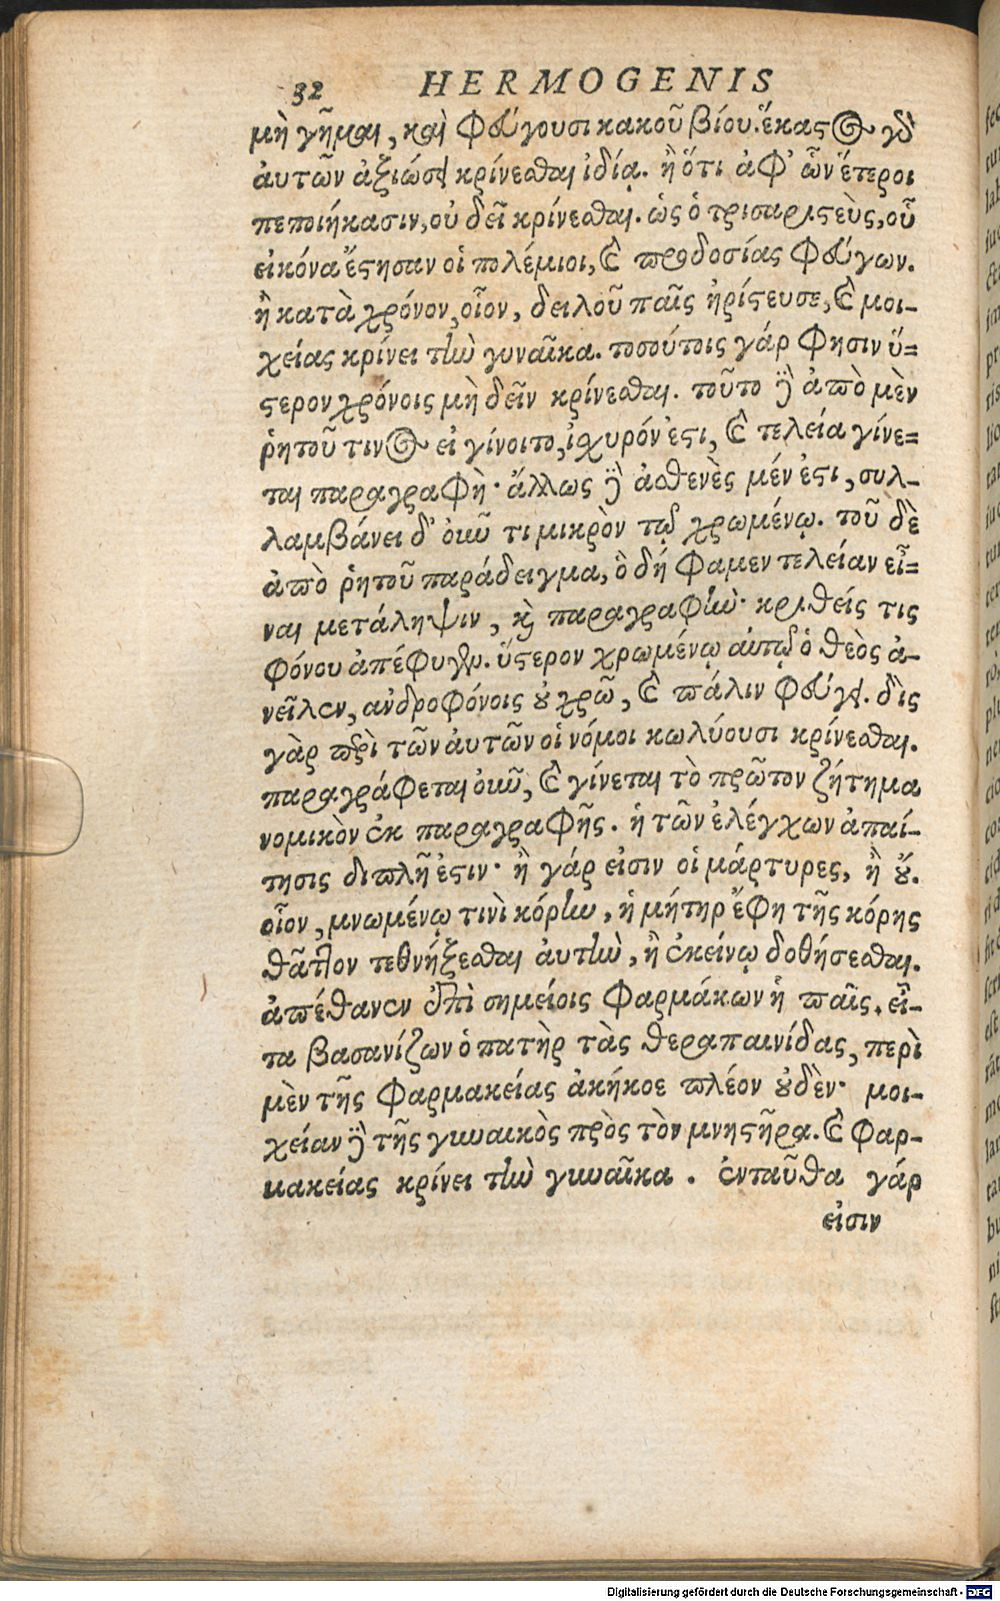 32 HERMOGENIS
μὴ γῆμαι, καὶ φεύγουσι κακοῦ βίου. ἕκαστος γὰρ
αὐτῶν ἀξιώσει κρίνεσθαι ἰδίᾳ. ἢ ὅτι ἀφ’ ὧν ἕτεροι
πεποιήκασιν, οὐ δεῖ κρίνεσθαι. ὡς ὁ τρισαριστεὺς, οὗ
εἰκόνα ἔστησαν οἱ πολέμιοι, καὶ προδοσίας φεύγων.
ἢ κατὰ χρόνον, οἷον, δειλοῦ παῖς ἠρίστευσε, καὶ μοι-
χείας κρίνει τὴν γυναῖκα. τοσούτοις γάρ φησιν ὕ=
στερον χρόνοις μὴ δεῖν κρίνεσθαι. τοῦτο δὲ ἀπὸ μὲν
ῥητοῦ τινος εἰ γίνοιτο, ἰσχυρόν ἐστι, καὶ τελεία γίνε=
ται παραγραφή· ἄλλως δὲ ἀσθενὲς μέν ἐστι, συλ-
λαμβάνει δ’ οὖν τι μικρὸν τῷ χρωμένῳ. τοῦ δὲ
ἀπὸ ῥητοῦ παράδειγμα, ὃ δή φαμεν τελείαν εἶ=
ναι μετάληψιν, καὶ παραγραφὴν· κριθείς τις
φόνου ἀπέφυγεν. ὕστερον χρωμένῳ αὐτῷ ὁ θεὸς ἀ-
νεῖλεν, ἀνδροφόνοις οὐ χρῶ, καὶ πάλιν φεύγει. δὶς
γὰρ περὶ τῶν αὐτῶν οἱ νόμοι κωλύουσι κρίνεσθαι.
παραγράφεται οὖν, καὶ γίνεται τὸ πρῶτον ζήτημα
νομικὸν ἐκ παραγραφῆς. ἡ τῶν ἐλέγχων ἀπαί-
τησις διπλῆ ἐστιν· ἢ γάρ εἰσιν οἱ μάρτυρες, ἢ οὔ.
οἷον, μνωμένῳ τινὶ κόρην, ἡ μήτηρ ἔφη τῆς κόρης
θᾶττον τεθνήξεσθαι αὐτὴν, ἢ ἐκείνῳ δοθήσεσθαι.
ἀπέθανεν ἐπὶ σημείοις φαρμάκων ἡ παῖς. εἶ-
τα βασανίζων ὁ πατὴρ τὰς θεραπαινίδας, περὶ
μὲν τῆς φαρμακείας ἀκήκοε πλέον οὐδὲν· μοι-
χείαν δὲ τῆς γυναικὸς πρὸς τὸν μνηστῆρα. καὶ φαρ-
μακείας κρίνει τὴν γυναῖκα. ἐνταῦθα γάρ
εἰσιν
Digitalisierung gefördert durch die Deutsche Forschungsgemeinschaft - DFG